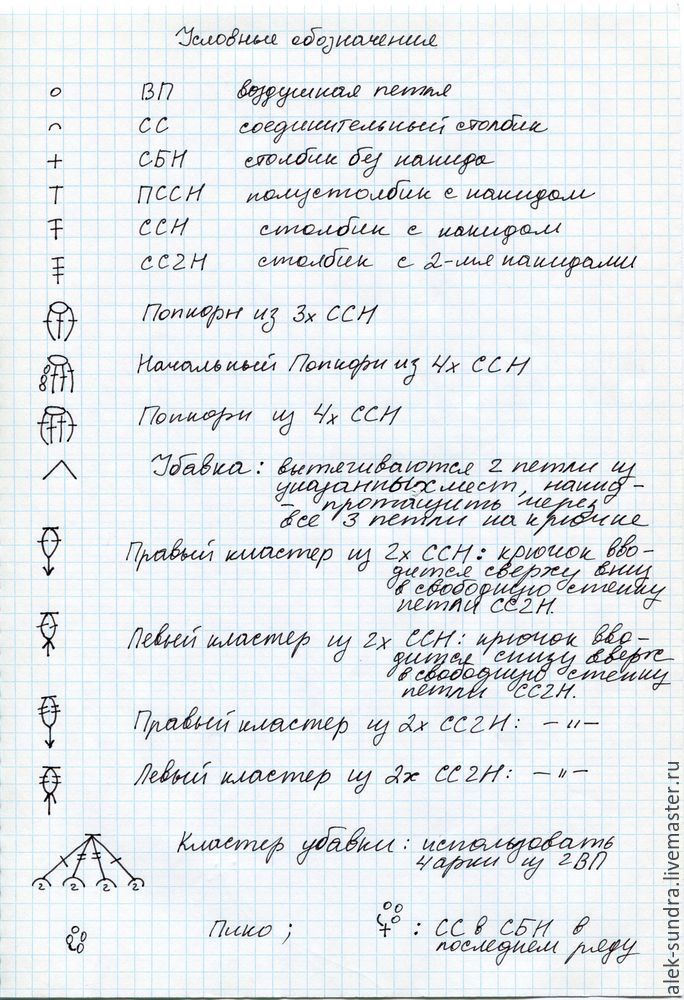 Условные обозначения
ВП воздушная петля
СС соединительный столбик
СБН столбик без накида
ПССН полустолбик с накидом
ССН столбик с накидом
СС2Н столбик с 2-мя накидами
Попкорн из 3х ССН
Начальный Попкорн из 4х ССН
Попкорн из 4х ССН
Убавка: вытягиваются 2 петли из
указанных мест, накид -
- протащить через
все 3 петли на крючке
Правый кластер из 2х ССН: крючок вво-
дится сверху вниз
в свободную стенку
петли СС2Н.
Левый кластер из 2х ССН: крючок вво-
дится снизу вверх
в свободную стенку
петли СС2Н.
Правый кластер из 2х СС2Н: —〃—
Левый кластер из 2х СС2Н: —〃—
Кластер убавки: использовать
4 арки из 2ВП
2 2 2 2
Пико; : СС в СБН в
последнем ряду
alek-sundra.livemaster.ru